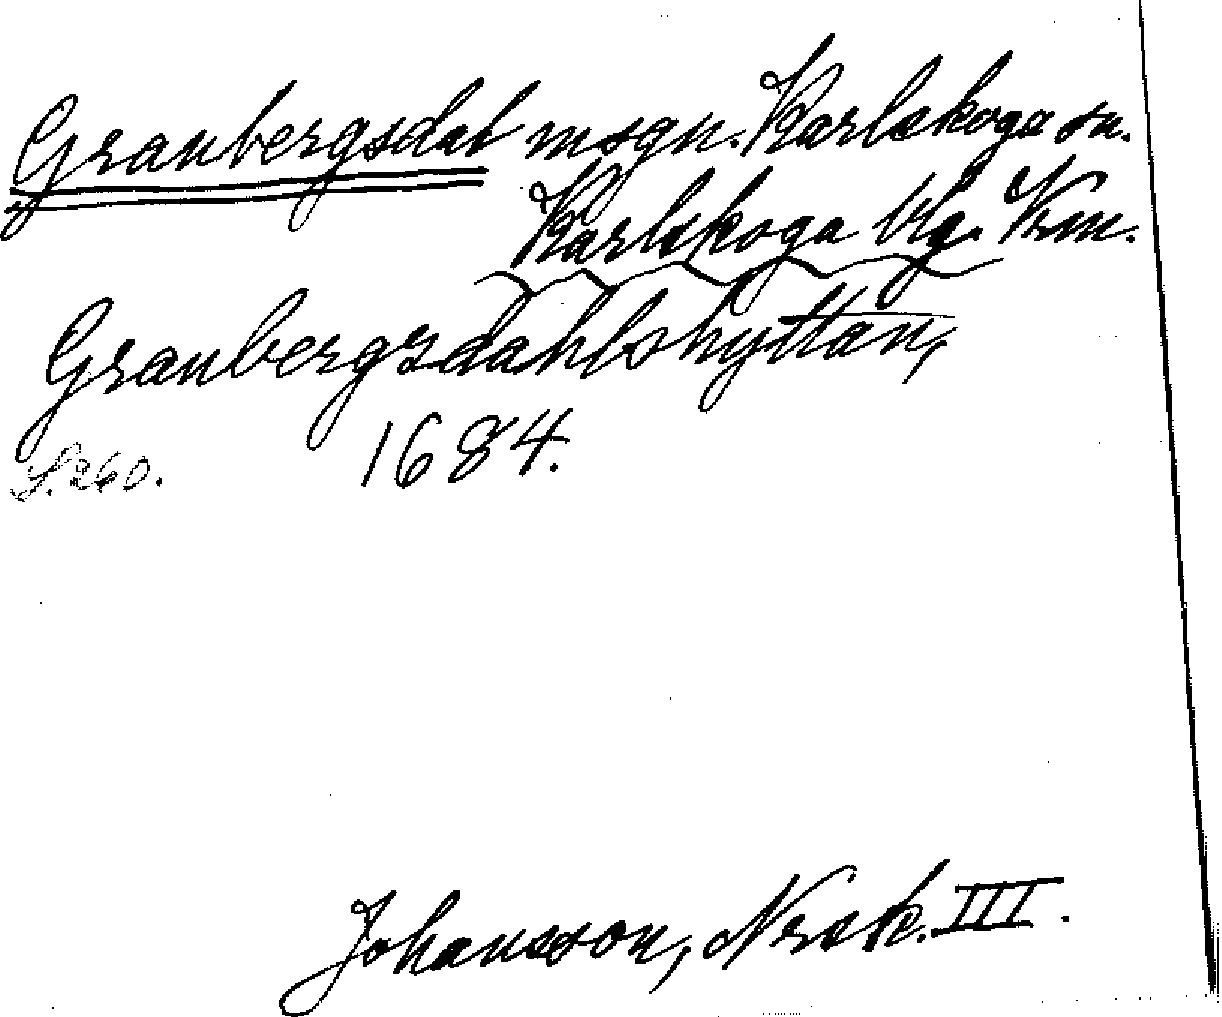 Granbergsdal msgn. Karlskoga sn.
Karlskoga blg. Vrm.
Granbergsdahlshyttan,
1684.
S. 260.
Johansson, Norsk. III.